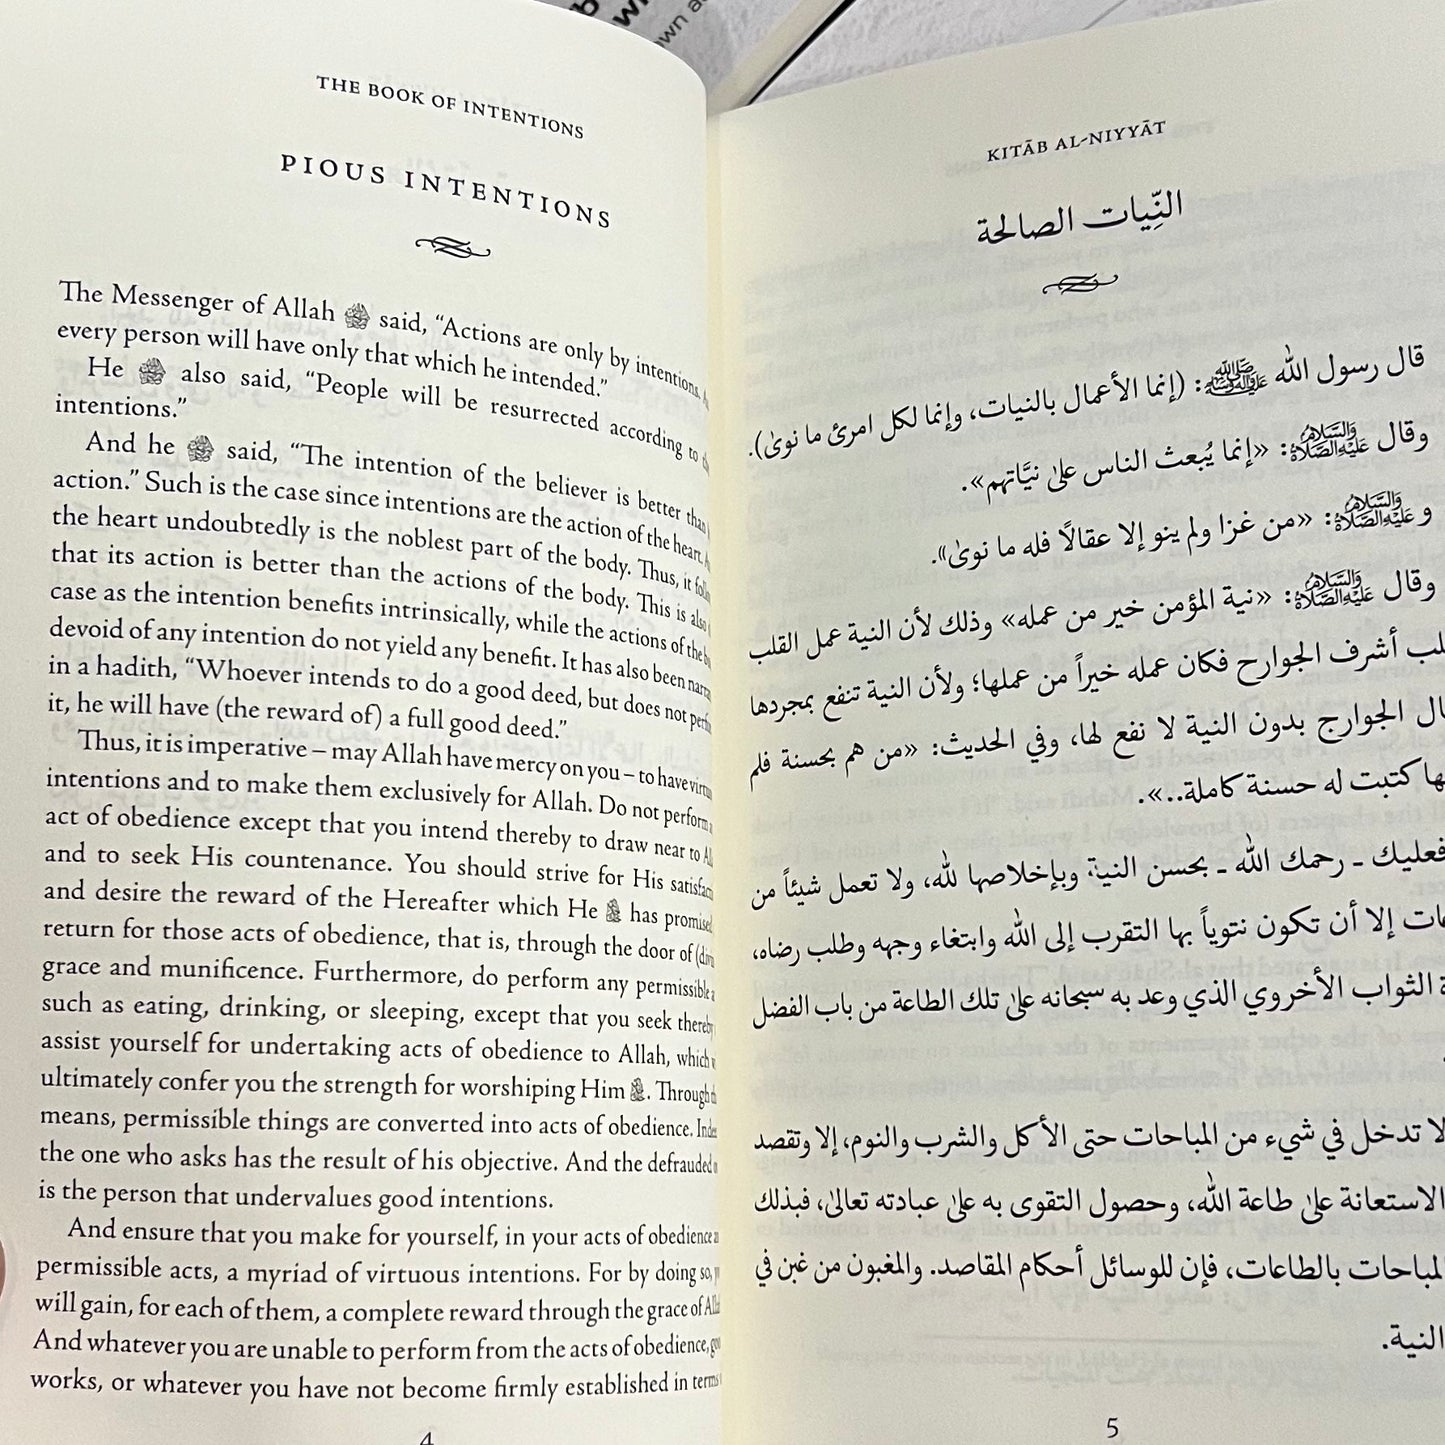 THE BOOK OF INTENTIONS
PIOUS INTENTIONS
The Messenger of Allah ﷺ said, “Actions are only by intentions.
every person will have only that which he intended.”
He ﷺ also said, “People will be resurrected according to
intentions.”
And he ﷺ said, “The intention of the believer is better than
action.” Such is the case since intentions are the action of the heart.
the heart undoubtedly is the noblest part of the body. Thus, it
that its action is better than the actions of the body. This is
case as the intention benefits intrinsically, while the actions of the
devoid of any intention do not yield any benefit. It has also been
in a hadith, “Whoever intends to do a good deed, but does not
it, he will have (the reward of) a full good deed.”
Thus, it is imperative – may Allah have mercy on you – to have
intentions and to make them exclusively for Allah. Do not perform
act of obedience except that you intend thereby to draw near to
and to seek His countenance. You should strive for His
and desire the reward of the Hereafter which He has
return for those acts of obedience, that is, through the door of
grace and munificence. Furthermore, do perform any permissible
such as eating, drinking, or sleeping, except that you seek
assist yourself for undertaking acts of obedience to Allah, which
ultimately confer you the strength for worshiping Him . Through
means, permissible things are converted into acts of obedience.
the one who asks has the result of his objective. And the defrauded
is the person that undervalues good intentions.
And ensure that you make for yourself, in your acts of obedience
permissible acts, a myriad of virtuous intentions. For by doing so,
will gain, for each of them, a complete reward through the grace of
And whatever you are unable to perform from the acts of obedience,
works, or whatever you have not become firmly established in terms
4
KITĀB AL-NIYYĀT
النِّيات الصالحة
قال رسول الله ﷺ: (إنما الأعمال بالنيات، وإنما لكل امرئ ما نوىٰ).
وقال عَلَيْهِ الصَّلَاةُ وَالسَّلَامُ: «إنما يُبعث الناس علىٰ نيَّاتهم».
و عَلَيْهِ الصَّلَاةُ وَالسَّلَامُ: «من غزا ولم ينو إلا عقالًا فله ما نوىٰ».
وقال عَلَيْهِ الصَّلَاةُ وَالسَّلَامُ: «نية المؤمن خير من عمله» وذلك لأن النية عمل القلب
أشرف الجوارح فكان عمله خيراً من عملها؛ ولأن النية تنفع بمجردها
الجوارح بدون النية لا نفع لها، وفي الحديث: «من هم بحسنة فلم
كتبت له حسنة كاملة..».
فعليك ـ رحمك الله ـ بحسن النية وبإخلاصها لله، ولا تعمل شيئاً من
إلا أن تكون نتوياً بها التقرب إلى الله وابتغاء وجهه وطلب رضاه،
الثواب الأخروي الذي وعد به سبحانه علىٰ تلك الطاعة من باب الفضل
لا تدخل في شيء من المباحات حتى الأكل والشرب والنوم، إلا وتقصد
الاستعانة علىٰ طاعة الله، وحصول التقوى به علىٰ عبادته تعالىٰ، فبذلك
المباحات بالطاعات، فإن للوسائل أحكام المقاصد. والمغبون من غبن في
النية.
5